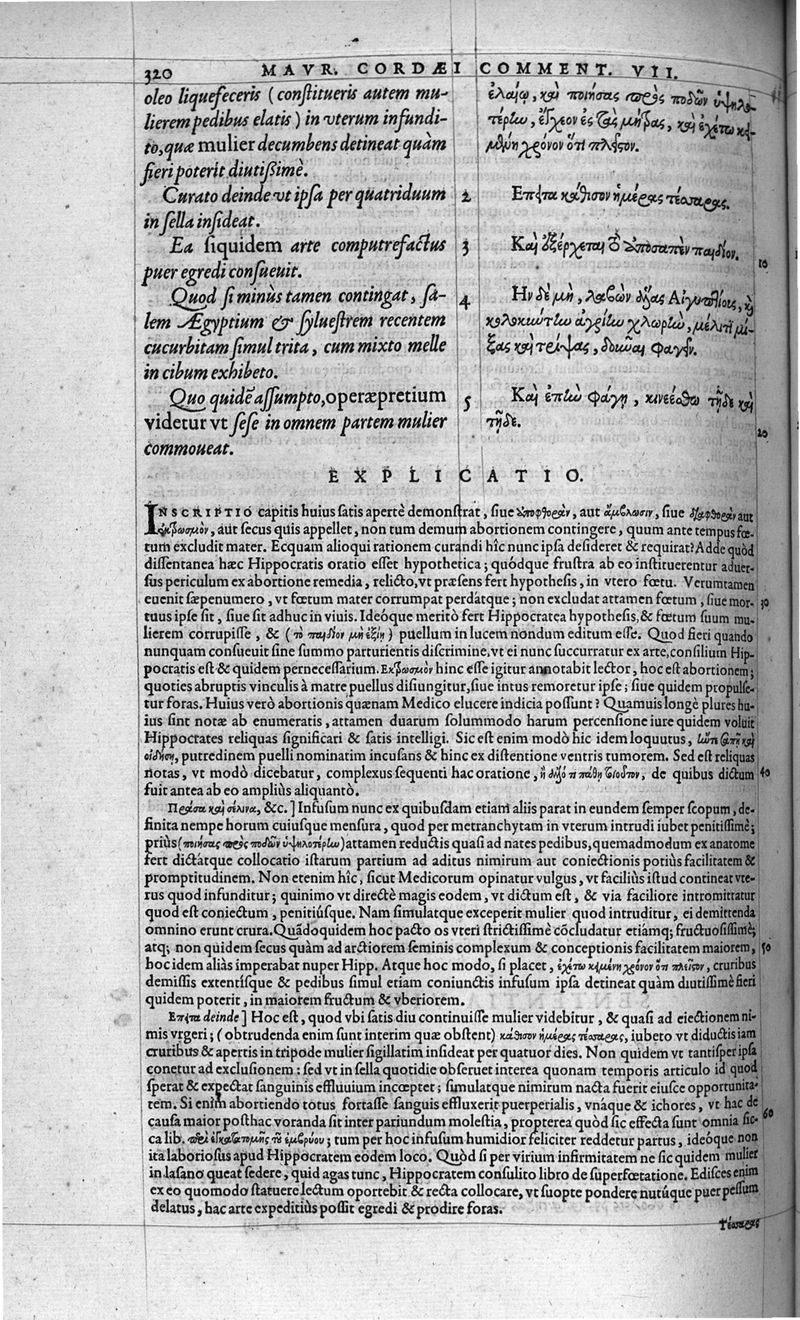 320 MAVR. CORDÆI COMMENT. VII.
oleo liquefeceris (constitueris autem mu-
lierem pedibus elatis) in vterum infundi-
to, quæ mulier decumbens detineat quàm
fieri poterit diutißimè.
Curato deinde vt ipsa per quatriduum
in sella insideat.
Ea siquidem arte computrefactus
puer egredi consueuit.
Quod si minùs tamen contingat, sa-
lem Ægyptium & syluestrem recentem
cucurbitam simul trita, cum mixto melle
in cibum exhibeto.
Quo quidē assumpto, operæpretium
videtur vt sese in omnem partem mulier
commoueat.
2
3
4
5
ἐλαίῳ, καὶ ποιήσας πρὸς ποδῶν ὑψηλο-
τέρίω, ἔγχεον ἐς τὰς μήτρας, καὶ ἐχέτω κα-
τακειμένη χρόνον ὅτι πλεῖστον.
Ἔπειτα κάθισον ἡμέρας τέσσαρας.
Καὶ ἐξέρχεται τὸ ἀποσαπὲν παιδίον.
10
Ἢν δὲ μὴ, λαβὼν ἅλας Αἰγυπτίους, καὶ
κολοκιώτίω ἀγρίίω χλωρίω, μέλιτι μί-
ξας καὶ τρίψας, δοῦναι φαγεῖν.
Καὶ ἐπίω φάγῃ, κινεέσθω τῇδε καὶ
τῇδε.
20
EXPLICATIO.
INSCRIPTIO capitis huius satis apertè demonstrat, siue ὑποφθορὰν, aut ἄμβλωσιν, siue διαφθορὰν aut
ἐκβρωσμὸν, aut secus quis appellet, non tum demum abortionem contingere, quum ante tempus fœ-
tum excludit mater. Ecquam alioqui rationem curandi hîc nunc ipsa desideret & requirat? Adde quòd
dissentanea hæc Hippocratis oratio esset hypothetica; quódque frustra ab eo instituerentur aduer-
sus periculum ex abortione remedia, relicto, vt præsens fert hypothesis, in vtero fœtu. Verumtamen
euenit sæpenumero, vt fœtum mater corrumpat perdátque; non excludat attamen fœtum, siue mor-
30
tuus ipse sit, siue sit adhuc in viuis. Ideóque meritò fert Hippocratea hypothesis, & fœtum suum mu-
lierem corrupisse, & (τὸ παιδίον μὴ ἐξίῃ) puellum in lucem nondum editum esse. Quod fieri quando
nunquam consueuit sine summo parturientis discrimine, vt ei nunc succurratur ex arte, consilium Hip-
pocratis est & quidem pernecessarium. Ἐκβρωσμὸν hinc esse igitur annotabit lector, hoc est abortionem;
quoties abruptis vinculis à matre puellus disiungitur, siue intus remoretur ipse; siue quidem propulse-
tur foras. Huius verò abortionis quænam Medico elucere indicia possunt? Quamuis longè plures hu-
ius sint notæ ab enumeratis, attamen duarum solummodo harum percensione iure quidem voluit
Hippocrates reliquas significari & satis intelligi. Sic est enim modò hîc idem loquutus, ἰώτι σαπῇ καὶ
οἰδήσῃ, putredinem puelli nominatim incusans & hinc ex distentione ventris tumorem. Sed est reliquas
notas, vt modò dicebatur, complexus sequenti hac oratione, ἢ ἄλλο τι πάθῃ τοιοῦτον, de quibus dictum
40
fuit antea ab eo amplius aliquantò.
Πράσα καὶ σέλινα, &c.] Infusum nunc ex quibusdam etiam aliis parat in eundem semper scopum, de-
finita nempe horum cuiusque mensura, quod per metranchytam in vterum intrudi iubet penitissimè;
priùs (ποιήσας πρὸς ποδῶν ὑψηλοτέρίω) attamen reductis quasi ad nates pedibus, quemadmodum ex anatome
fert dictátque collocatio istarum partium ad aditus nimirum aut coniectionis potiùs facilitatem &
promptitudinem. Non etenim hîc, sicut Medicorum opinatur vulgus, vt faciliùs istud contineat vte-
rus quod infunditur; quinimo vt directè magis eodem, vt dictum est, & via faciliore intromittatur
quod est coniectum, penitiúsque. Nam simulatque exceperit mulier quod intruditur, ei demittenda
omnino erunt crura. Quādoquidem hoc pacto os vteri strictissimè cōcludatur etiámq; fructuosissimè;
atq; non quidem secus quàm ad arctiorem seminis complexum & conceptionis facilitatem maiorem,
50
hoc idem aliàs imperabat nuper Hipp. Atque hoc modo, si placet, ἐχέτω κειμένη χρόνον ὅτι πλεῖστον, cruribus
demissis extentísque & pedibus simul etiam coniunctis infusum ipsa detineat quàm diutissimè fieri
quidem poterit, in maiorem fructum & vberiorem.
Ἔπειτα deinde] Hoc est, quod vbi satis diu continuisse mulier videbitur, & quasi ad eiectionem ni-
mis vrgeri; (obtrudenda enim sunt interim quæ obstent) κάθισον ἡμέρας τέσσαρας, iubeto vt diductis iam
cruribus & apertis in tripode mulier sigillatim insideat per quatuor dies. Non quidem vt tantisper ipsa
conetur ad exclusionem: sed vt in sella quotidie obseruet interea quonam temporis articulo id quod
sperat & expectat sanguinis effluuium incœptet; simulatque nimirum nacta fuerit eiusce opportunita-
tem. Si enim abortiendo totus fortasse sanguis effluxerit puerperialis, vnáque & ichores, vt hac de
60
causa maior posthac voranda sit inter pariundum molestia, propterea quòd sic effecta sunt omnia sic-
ca lib. περὶ ἐγκατατομῆς τοῦ ἐμβρύου; tum per hoc infusum humidior feliciter reddetur partus, ideóque non
ita laboriosus apud Hippocratem eodem loco. Quòd si per virium infirmitatem ne sic quidem mulier
in lasano queat sedere, quid agas tunc, Hippocratem consulito libro de superfœtatione. Edisces enim
ex eo quomodo statuere lectum oportebit & recta collocare, vt suopte pondere nutúque puer pessum
delatus, hac arte expeditiùs possit egredi & prodire foras.
τέσσαρας